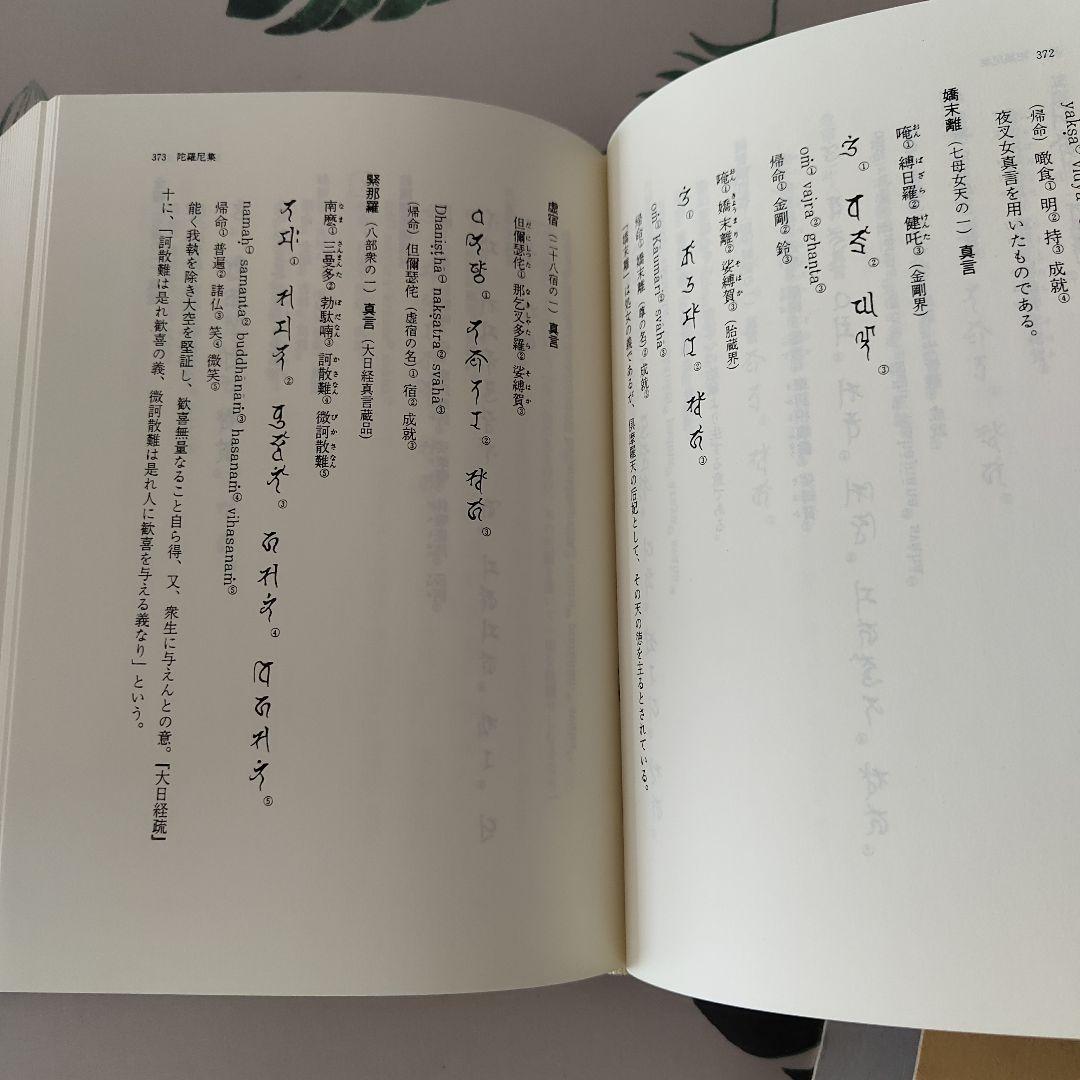 372
夜叉女真言を用いたものである。
(帰命) 噉食① 明② 持③ 成就④
嬌末離(七母女天の一)真言
唵① 縛日羅② 健吒③(金剛界)
おん ばざら けんた
oṁ① vajra② ghaṇṭa③
帰命① 金剛② 鈴③
唵① 嬌末離② 娑縛賀③(胎蔵界)
おん きょうまり そはか
oṁ① Kaumari② svāhā③
帰命① 嬌末離(尊の名)② 成就③
「嬌末離」は処女の義であるが、倶摩羅天の后妃として、その天の徳を主るとされている。
373 陀羅尼集
虚宿(二十八宿の一)真言
但儞瑟侘① 那乞叉多羅② 娑縛賀③
だにしった なきしゃたら そはか
Dhaniṣṭhā① nakṣatra② svāhā③
(帰命) 但儞瑟侘(虚宿の名)① 宿② 成就③
緊那羅(八部衆の一)真言(大日経真言蔵品)
南麽① 三曼多② 勃駄喃③ 訶散難④ 微訶散難⑤
なまく さんまんた ぼだなん かさなん びかさなん
namaḥ① samanta② buddhānāṁ③ hasanaṁ④ vihasanaṁ⑤
帰命① 普遍② 諸仏③ 笑④ 微笑⑤
能く我執を除き大空を堅証し、歓喜無量なること自ら得、又、衆生に与えんとの意。『大日経疏』
十に、「訶散難は是れ歓喜の義、微訶散難は是れ人に歓喜を与える義なり」という。